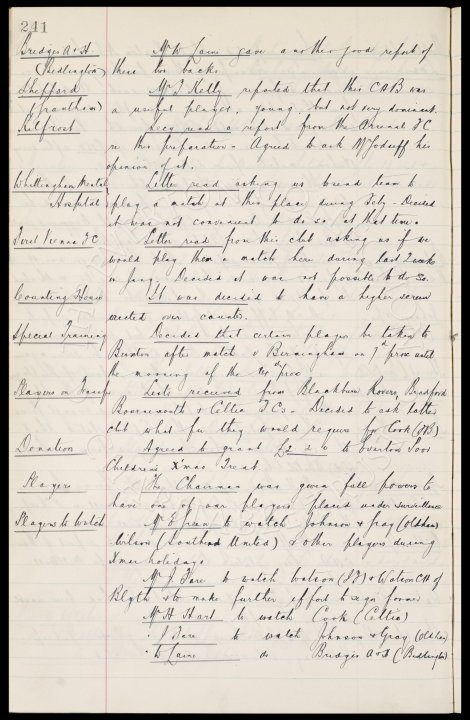 241
Bridges A & H Mr W. Laine gave another good report of
(Bedlington) these two backs
Sheppard Mr J Kelly reported that this CHB was
(Grantham) a useful player, young, but not very dominant.
Kilfrost Secy read a report from the Arsenal FC
re this preparation - Agreed to ask Mr his
opinion of it.
Whittingham Mental Letter read asking us to send team to
Hospital play a match at this place during Feby - Decided
it was not convenient to do so at that time.
First Vienna F.C. Letter read from this club asking us if we
would play them a match here during last 2 weeks
in Jany. Decided it was not possible to do so.
Counting House It was decided to have a higher screen
erected over counter.
Special Training Decided that certain players be taken to
Buxton after match v Birmingham on 7th prox until
the morning of the th prox
Players on Transfer Lists received from Blackburn Rovers, Bradford
Bournemouth & Celtic F.Cs. - Decided to ask latter
club what fee they would require for Cook (FB)
Donation Agreed to grant £2 2 0 to Everton Poor
Childrens Xmas Treat.
Players The Chairman was given full powers to
have one of our players placed under surveillance
Players to Watch Mr E Green to watch Johnson & Gray (Oldham)
Wilson (Southend United) & other players during
Xmas holidays
Mr J Fare to watch Watson (IF) & Watson CH of
Blyth & to make further effort to sign former
Mr H Hart to watch Cook (Celtic)
" J Fare to watch Johnson & Gray (Oldham)
" W Laine do Bridges A & H (Bedlington)